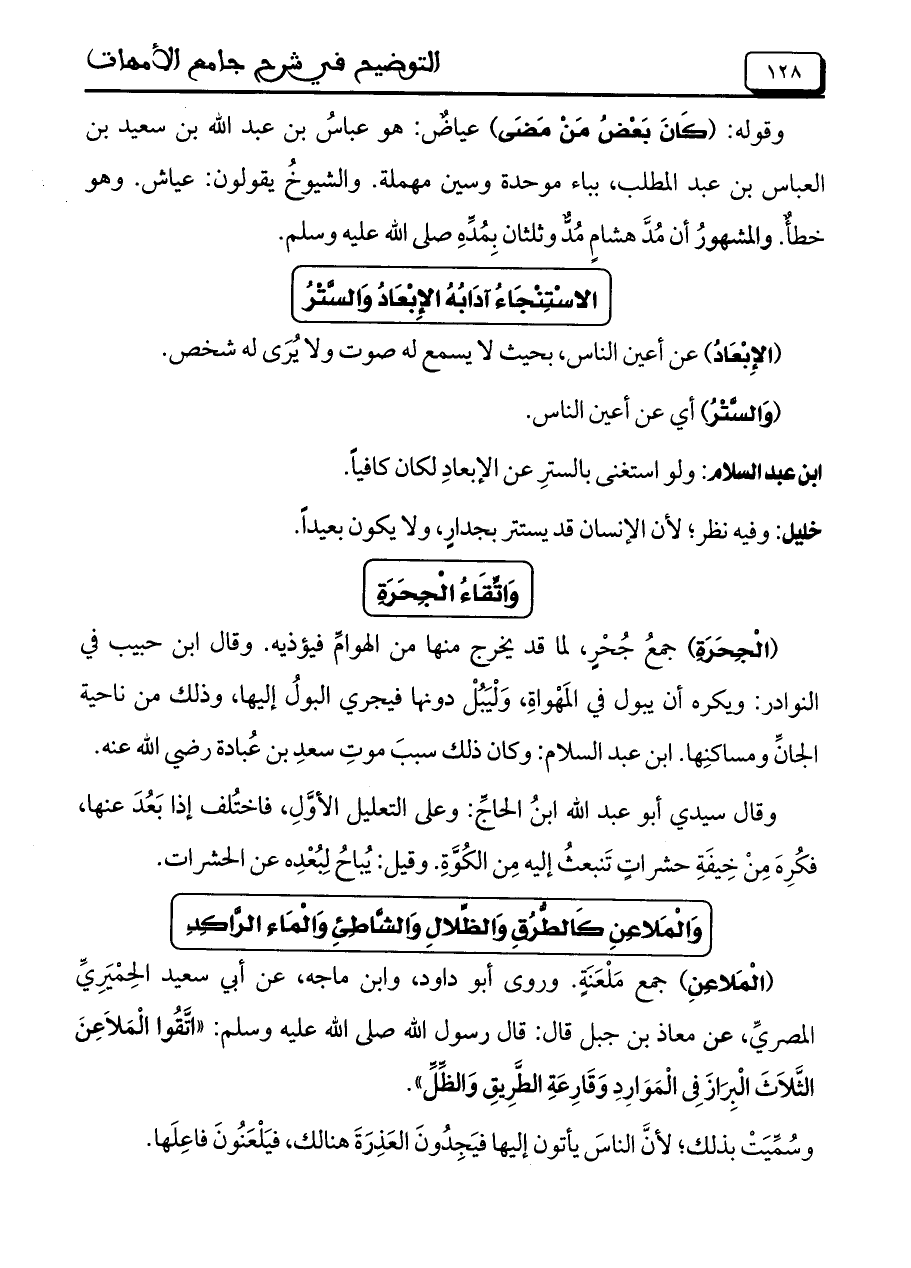 ١٢٨
التوضيح في شرح جامع الأمهات
وقوله: (كَانَ بَعْضُ مَنْ مَضَى) عياضٌ: هو عباسُ بن عبد الله بن سعيد بن
العباس بن عبد المطلب، بباء موحدة وسين مهملة. والشيوخُ يقولون: عياش. وهو
خطأٌ. والمشهورُ أن مُدَّ هشامٍ مُدٌّ وثلثان بِمُدِّهِ صلى الله عليه وسلم.
الاسْتِنْجَاءُ آدَابُهُ الإِبْعَادُ وَالسَّتْرُ
(الإِبْعَادُ) عن أعين الناس، بحيث لا يسمع له صوت ولا يُرَى له شخص.
(وَالسَّتْرُ) أي عن أعين الناس.
ابن عبد السلام: ولو استغنى بالسترِ عن الإبعادِ لكان كافياً.
خليل: وفيه نظر؛ لأن الإنسان قد يستتر بجدارٍ، ولا يكون بعيداً.
وَاتِّقَاءُ الْجِحَرَةِ
(الْجِحَرَةِ) جمعُ جُحْرٍ، لما قد يخرج منها من الهوامِّ فيؤذيه. وقال ابن حبيب في
النوادر: ويكره أن يبول في المَهْواةِ، وَلْيَبُلْ دونها فيجري البولُ إليها، وذلك من ناحية
الجانِّ ومساكنِها. ابن عبد السلام: وكان ذلك سببَ موتِ سعدِ بن عُبادة رضي الله عنه.
وقال سيدي أبو عبد الله ابنُ الحاجِّ: وعلى التعليل الأوَّلِ، فاختُلف إذا بَعُدَ عنها،
فكُرِهَ مِنْ خِيفَةِ حشراتٍ تَنبعثُ إليه مِن الكُوَّةِ. وقيل: يُباحُ لِبُعْدِه عن الحشرات.
وَالْمَلاعِنِ كَالطُّرُقِ وَالظِّلالِ وَالشَّاطِئِ وَالْمَاءِ الرَّاكِدِ
(الْمَلاعِنِ) جمع مَلْعَنَةٍ. وروى أبو داود، وابن ماجه، عن أبي سعيد الحِمْيَرِيِّ
المصريِّ، عن معاذ بن جبل قال: قال رسول الله صلى الله عليه وسلم: «اتَّقُوا الْمَلاَعِنَ
الثَّلاَثَ الْبِرَازَ فِي الْمَوَارِدِ وَقَارِعَةِ الطَّرِيقِ وَالظِّلِّ».
وسُمِّيَتْ بذلك؛ لأنَّ الناسَ يأتون إليها فيَجِدُونَ العَذِرَةَ هنالك، فيَلْعَنُونَ فاعِلَها.